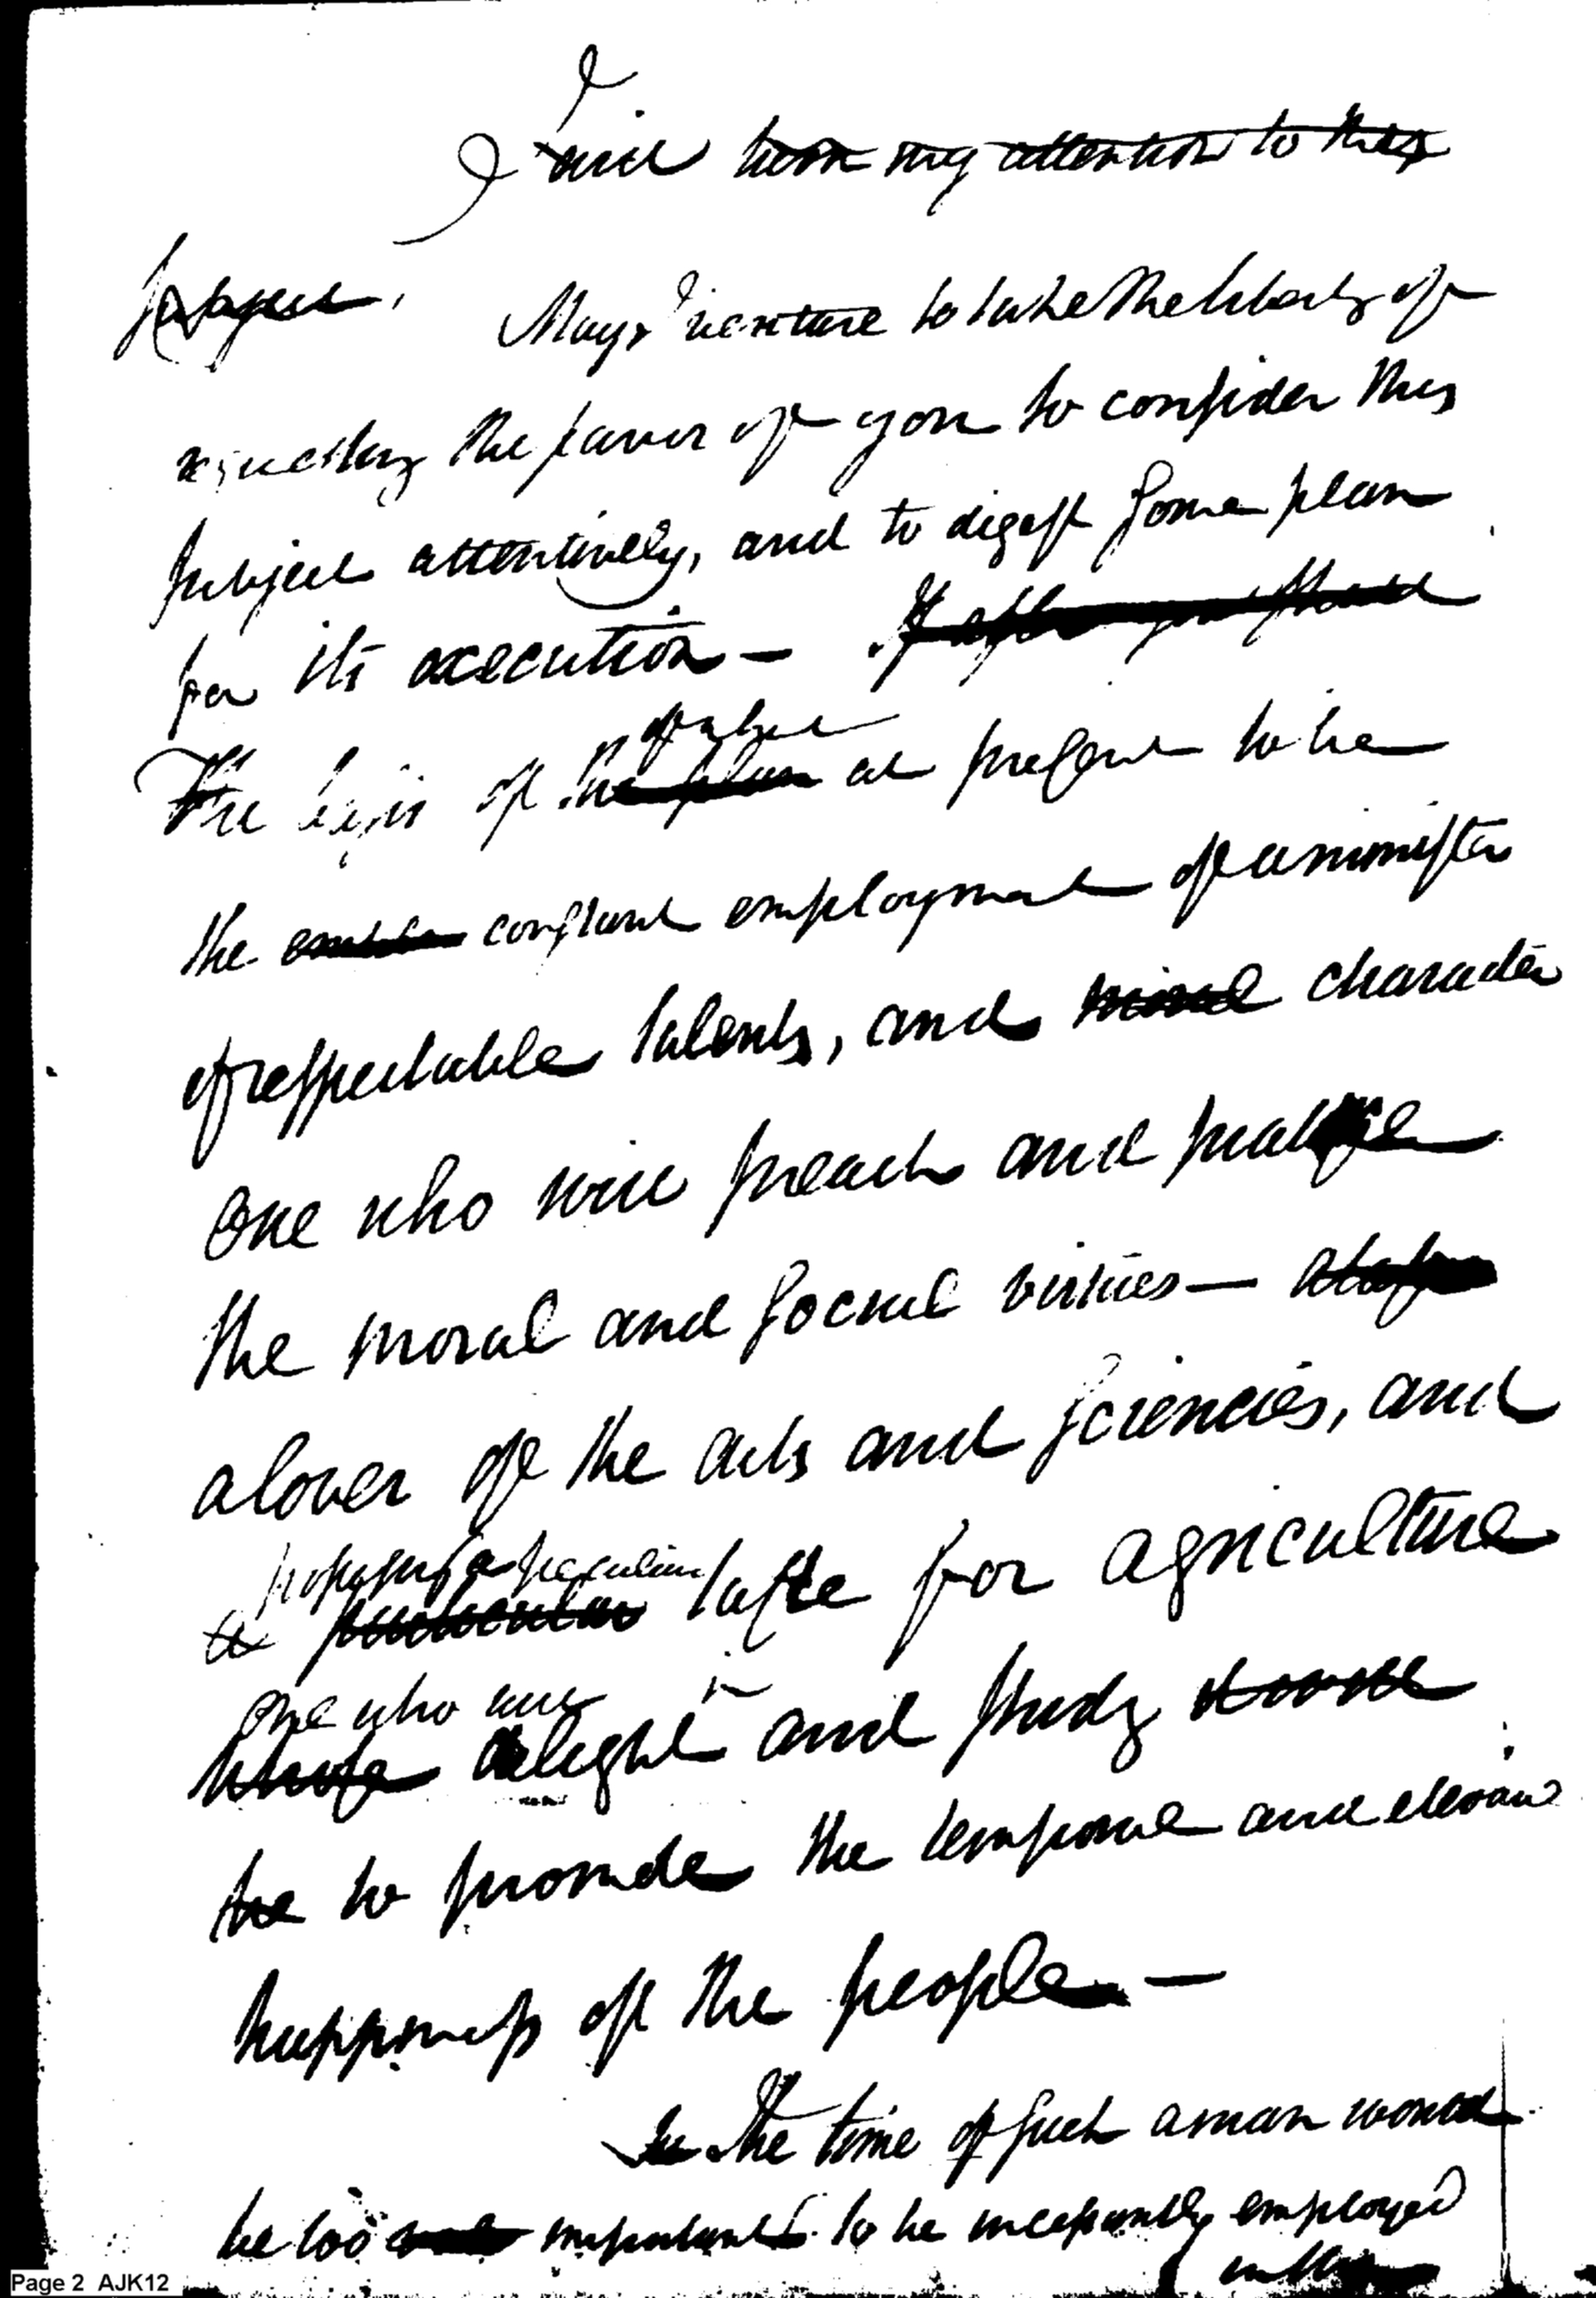 I will turn my attention to this
subject. May I venture to take the liberty of
requesting the favor of you to consider this
subject attentively, and to digest some plan
for its execution — If after you shall
The basis of the plan at present to be
the constant employment of a minister
of respectable talents, and moral character
one who will preach and practice
the moral and social virtues —
a lover of the arts and sciences, and
possessing a peculiar
a particular taste for agriculture
one who will in
whose delight and study it would
be to promote the temporal and eternal
happiness of the people —
The time of such a man would
be too important to be incessantly employed
in the
Page 2 AJK12